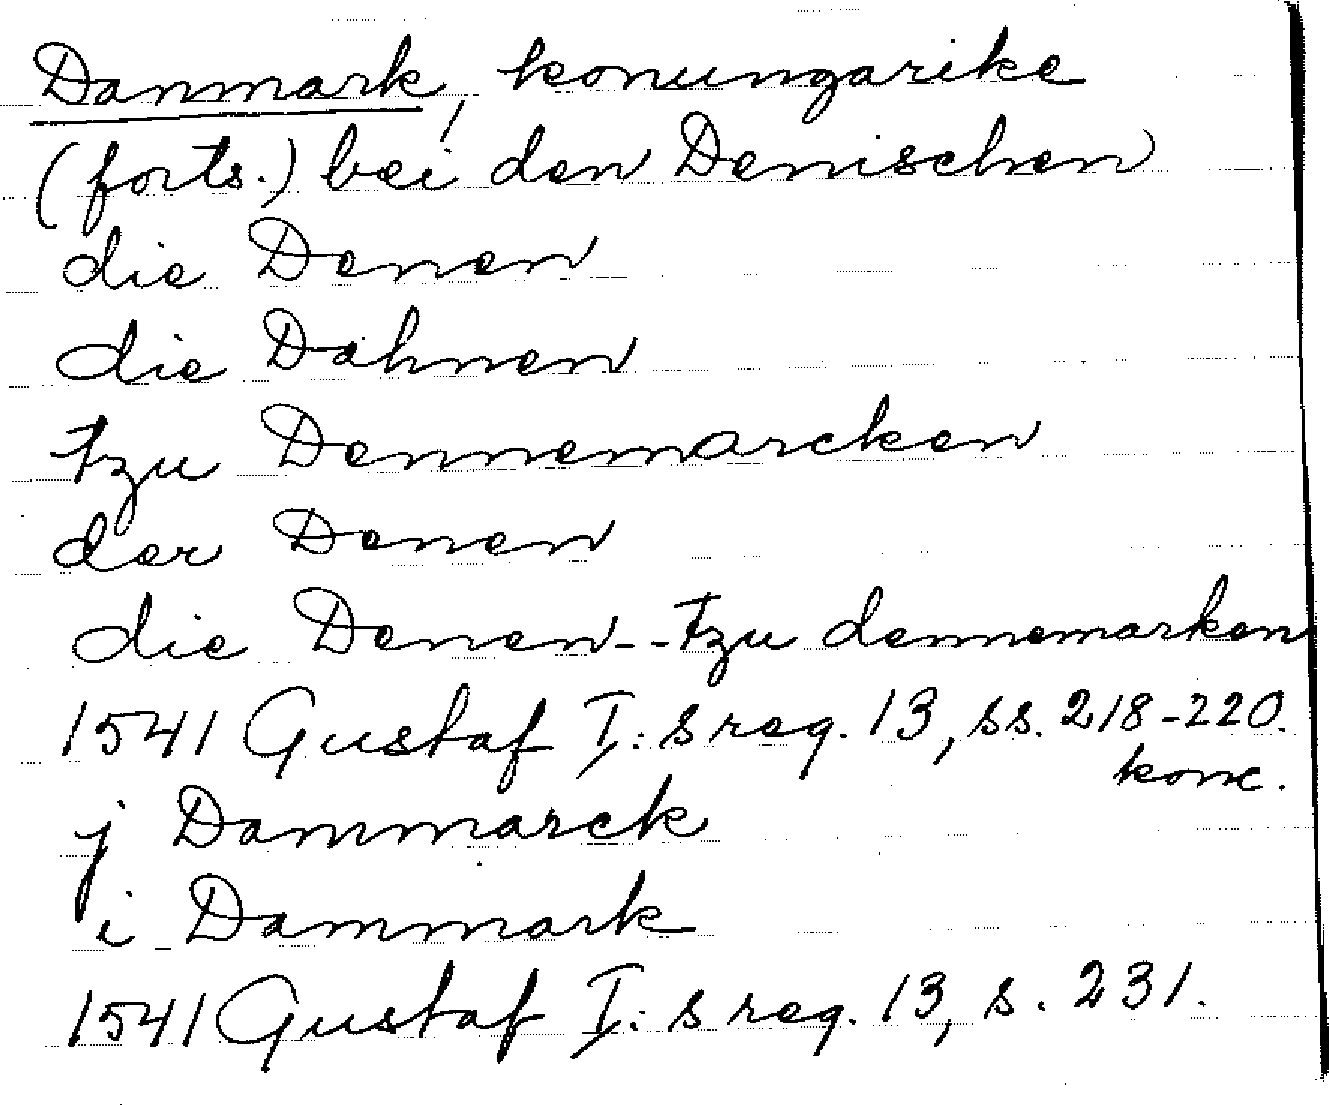 Danmark, konungarike
(forts.) bei den Denischen
die Denen
die Dähnen
tzu Dennemarcken
der Denen
die Denen--tzu dennemarken
1541 Gustaf I:s reg. 13, ss. 218-220.
konc.
j Dammarck
i Dammark
1541 Gustaf I:s reg. 13, s. 231.